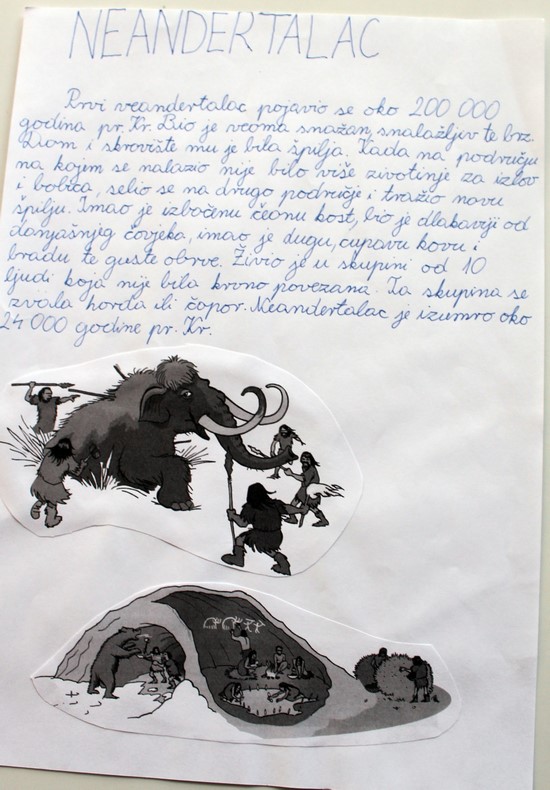 NEANDERTALAC
Prvi neandertalac pojavio se oko 200 000
godina pr. Kr. Bio je veoma snažan, snalažljiv te brz.
Dom i skrovište mu je bila špilja. Kada na području
na kojem se nalazio nije bilo više životinje za izlov
i bobica, selio se na drugo područje i tražio novu
špilju. Imao je izbočenu čeonu kost, bio je dlakaviji od
današnjeg čovjeka, imao je dugu, čupavu kosu i
bradu te guste obrve. Živio je u skupini od 10
ljudi koja nije bila krvno povezana. Ta skupina se
zvala horda ili čopor. Neandertalac je izumro oko
24 000 godine pr. Kr.